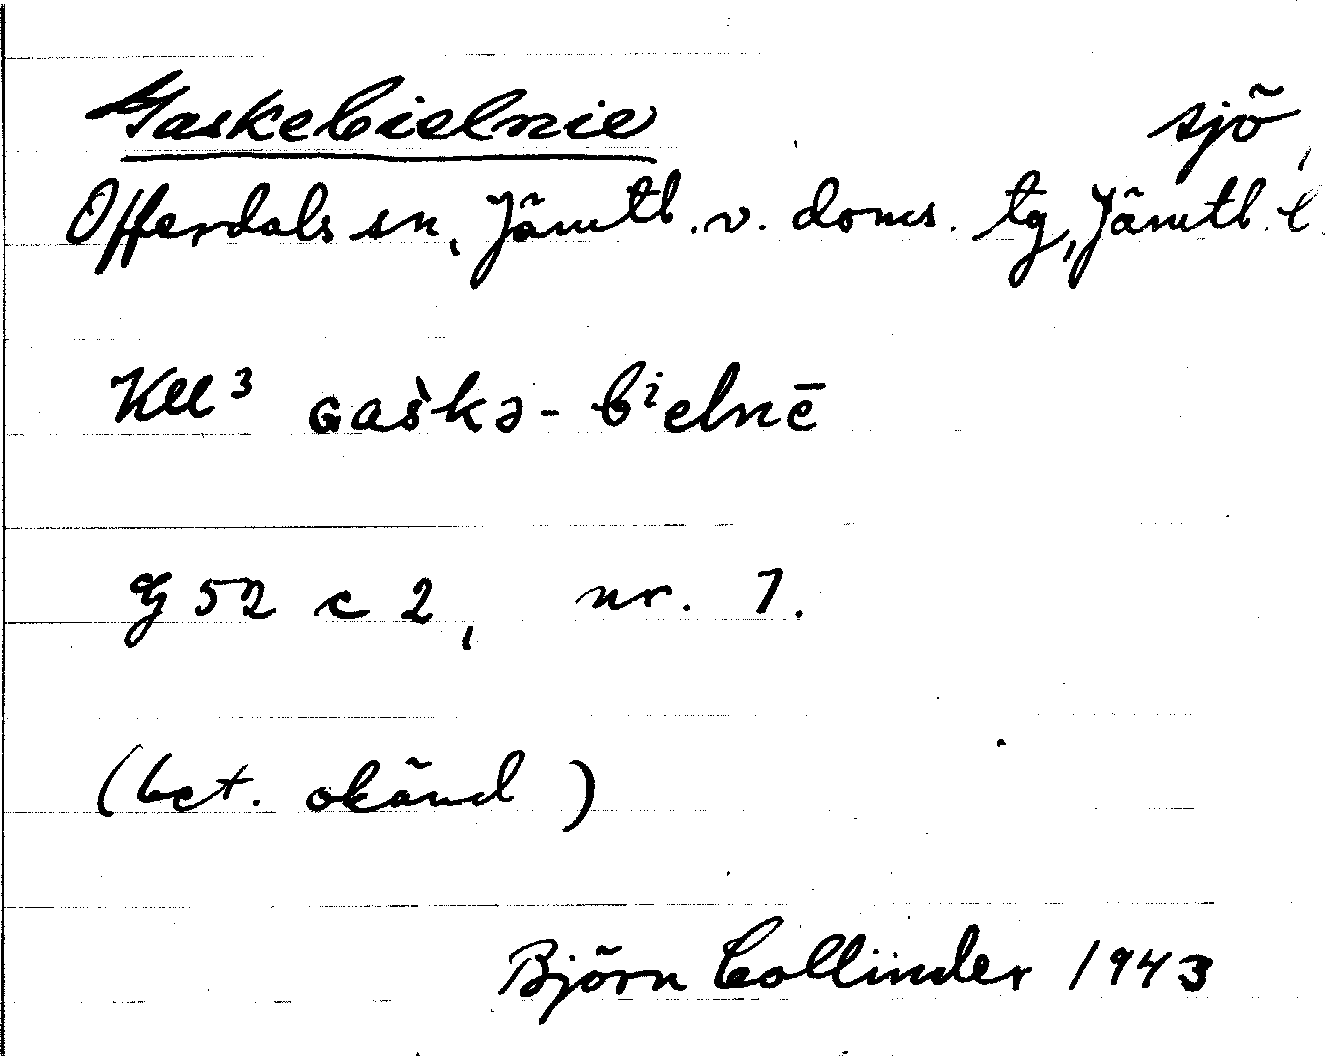 Gaskebielnie sjö,
Offerdals sn, Jämtl. v. doms. tg, Jämtl. l
Kll³ ɢaškə- bⁱelnē
G 52 c 2, nr. 7.
(bet. okänd)
Björn Collinder 1943